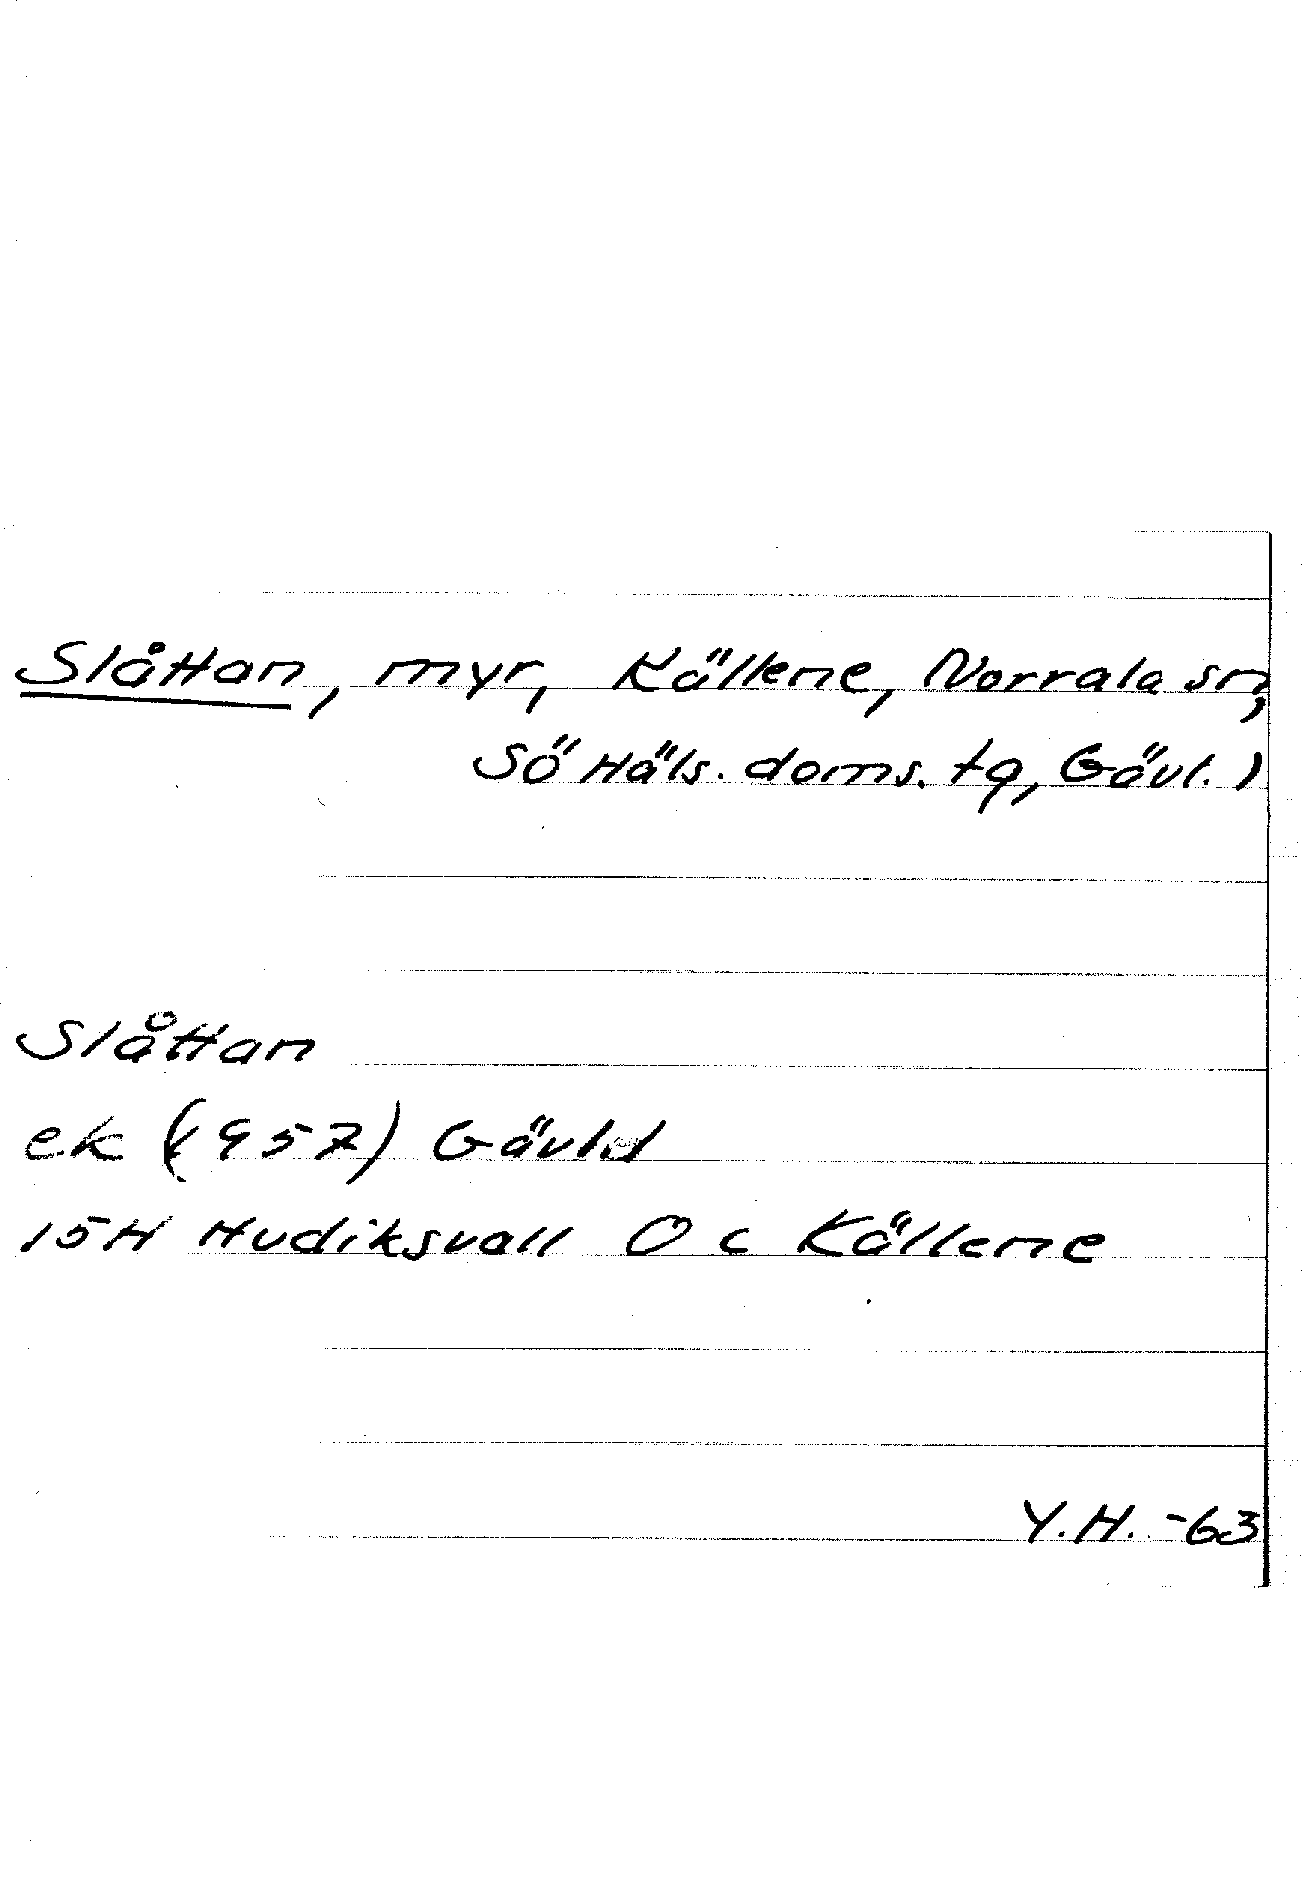 Slåttan, myr, Källene, Norrala sn,
Sö Häls. doms. tg, Gävl.)
Slåttan
ek (1957) Gävl.l
15H Hudiksvall O c Källene
Y.H. -63